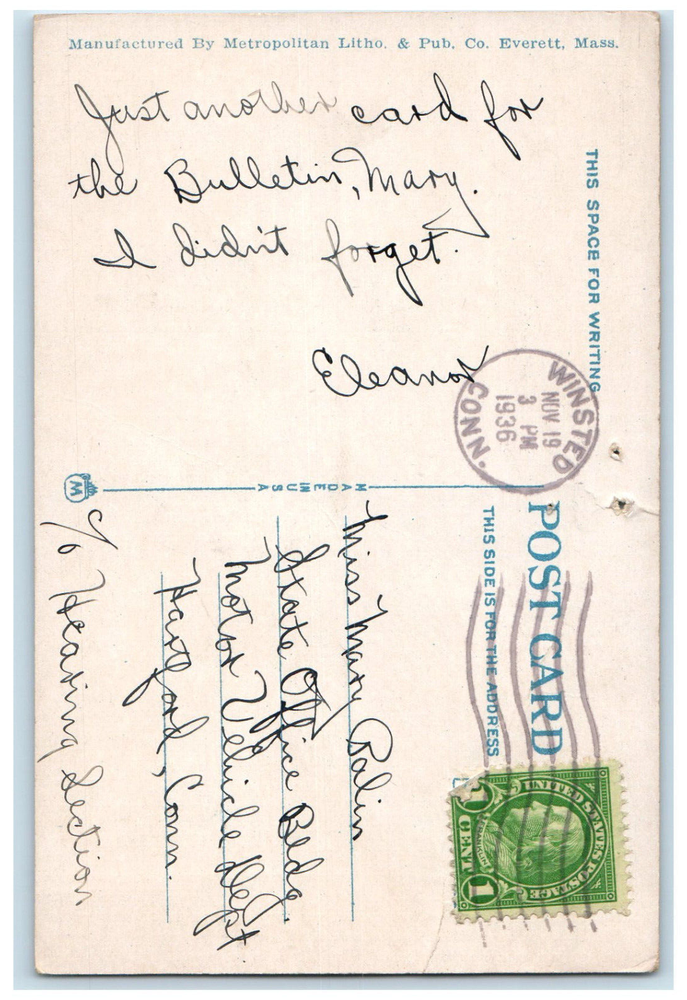 Manufactured By Metropolitan Litho. & Pub. Co. Everett, Mass.
Just another card for
the Bulletin, Mary.
I didn't forget.
Eleanor
THIS SPACE FOR WRITING
WINSTED
NOV 19
3 PM
1936
CONN.
MADE IN USA
M
POST CARD
THIS SIDE IS FOR THE ADDRESS
Miss Mary Balin
State Office Bldg.
Motor Vehicle Dept.
Hartford, Conn.
c/o Hearing Section
UNITED STATES POSTAGE
1 CENT 1